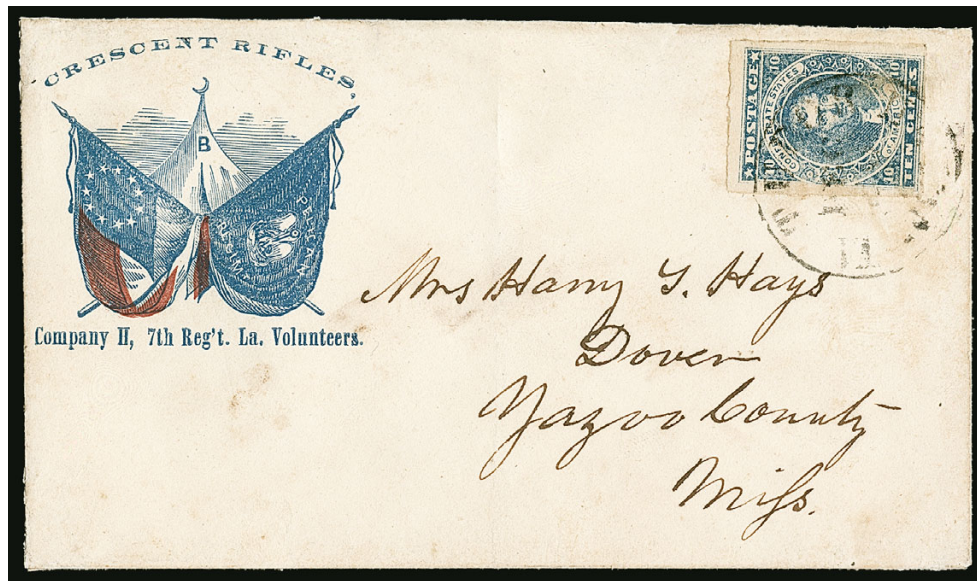 CRESCENT RIFLES,
B
Company H, 7th Reg't. La. Volunteers.
POSTAGE
CONFEDERATE STATES
OF AMERICA
TEN CENTS
10 10
10 10
Mrs Harry T. Hays
Dover
Yazoo County
Miss.